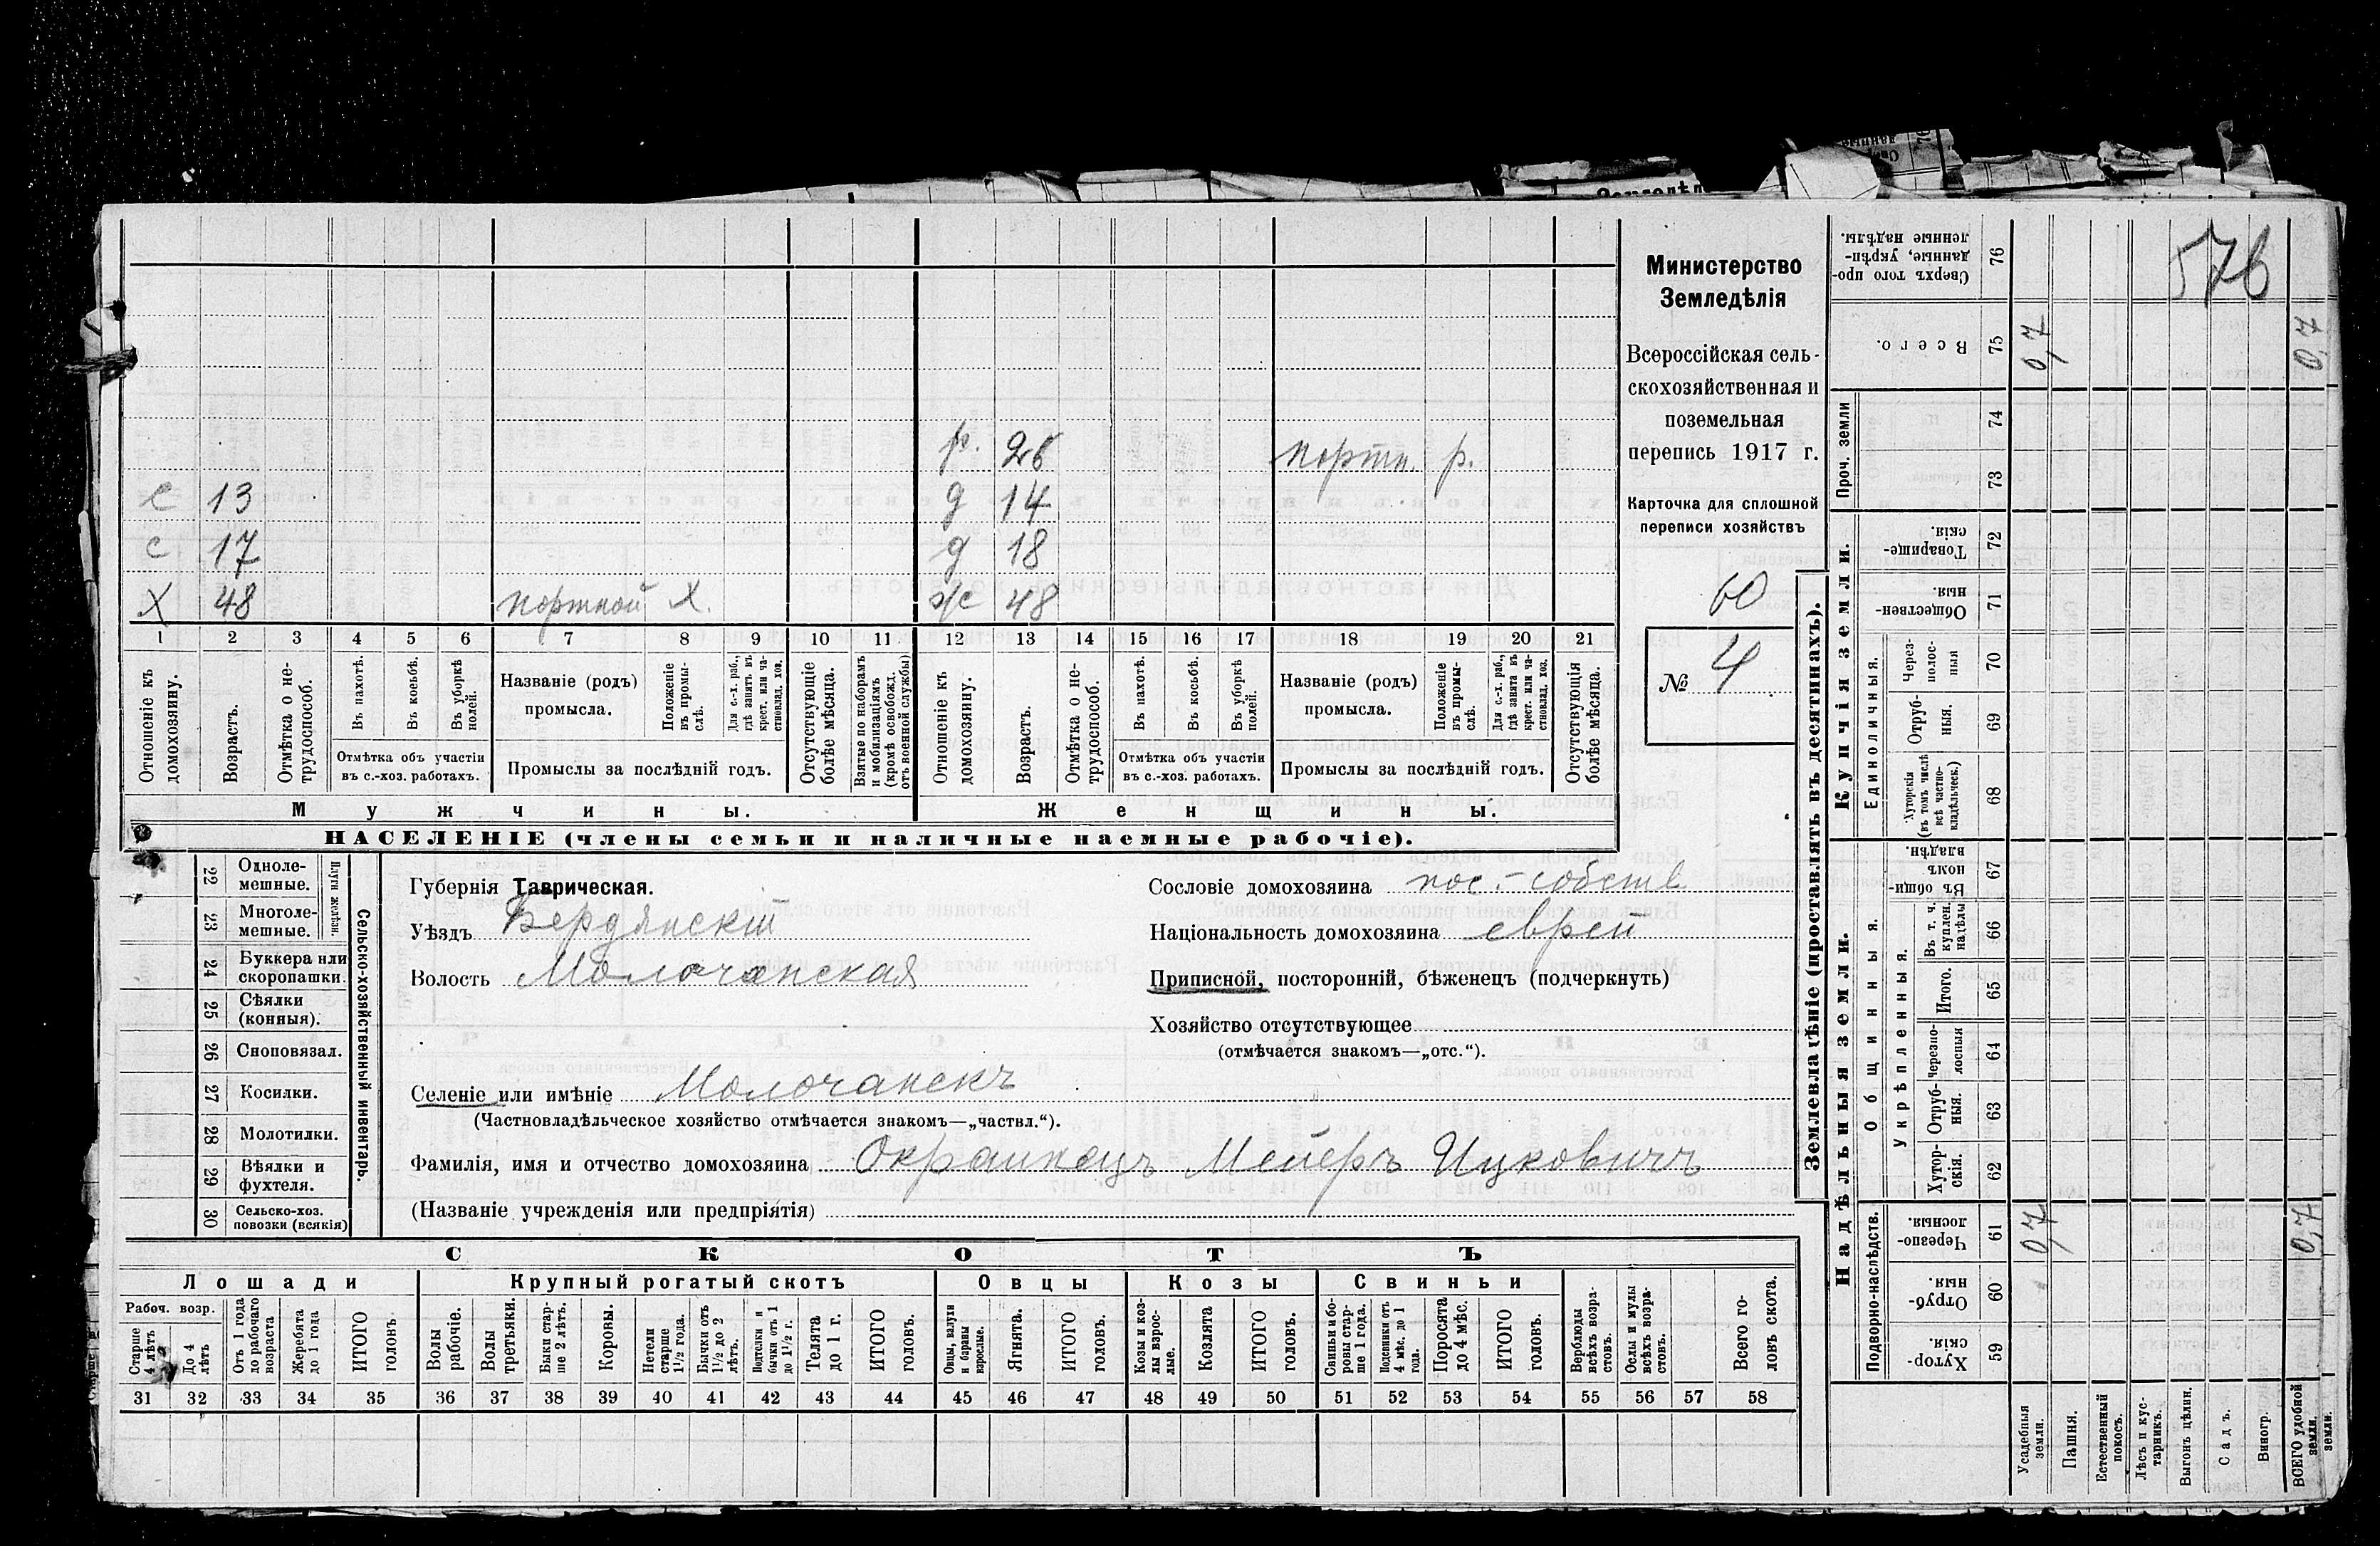 576
Министерство
Земледѣлія
Всероссійская сель-
скохозяйственная и
поземельная
перепись 1917 г.
Карточка для сплошной
переписи хозяйствъ
60
№ 4
р. 26 портн. р.
с 13 д 14
с 17 д 18
Х 48 портной Х. ж 48
1 2 3 4 5 6 7 8 9 10 11 12 13 14 15 16 17 18 19 20 21
Отношеніе къ домохозяину.
Возрастъ.
Отмѣтка о не-трудоспособ.
Въ пахотѣ.
Въ косьбѣ.
Въ уборкѣ полей.
Отмѣтка объ участіи
въ с.-хоз. работахъ.
Названіе (родъ)
промысла.
Положеніе въ промы-слѣ.
Для с.-х. раб., гдѣ занятъ въ крест. или ча-стновлад. хоз.
Промыслы за послѣдній годъ.
Отсутствующіе болѣе мѣсяца.
Взятые по наборамъ и мобилизаціямъ (кромѣ освобожд. отъ военной службы)
Отношеніе къ домохозяину.
Возрастъ.
Отмѣтка о не-трудоспособ.
Въ пахотѣ.
Въ косьбѣ.
Въ уборкѣ полей.
Отмѣтка объ участіи
въ с.-хоз. работахъ.
Названіе (родъ)
промысла.
Положеніе въ промы-слѣ.
Для с.-х. раб., гдѣ занята въ крест. или ча-стновлад. хоз.
Промыслы за послѣдній годъ.
Отсутствующія болѣе мѣсяца.
Мужчины. Женщины.
НАСЕЛЕНІЕ (члены семьи и наличные наемные рабочіе).
22 Одноле-мешные.
23 Многоле-мешные.
Плуги желѣзн.
24 Буккера или скоропашки.
25 Сѣялки (конныя).
26 Сноповязал.
27 Косилки.
28 Молотилки.
29 Вѣялки и фухтеля.
30 Сельско-хоз. повозки (всякія)
Сельско-хозяйственный инвентарь.
Губернія Таврическая.
Уѣздъ Бердянскій
Волость Молочанская
Сословіе домохозяина пос.-собств
Національность домохозяина еврей
Приписной, посторонній, бѣженецъ (подчеркнуть)
Хозяйство отсутствующее
(отмѣчается знакомъ—„отс.“).
Селеніе или имѣніе Молочанскъ
(Частновладѣльческое хозяйство отмѣчается знакомъ—„частвл.“).
Фамилія, имя и отчество домохозяина Окраинецъ Мейеръ Ицковичъ
(Названіе учрежденія или предпріятія)
СКОТЪ
Лошади Крупный рогатый скотъ Овцы Козы Свиньи
Рабоч. возр.
Старше 4 лѣтъ
До 4 лѣтъ
Отъ 1 года до рабочаго возраста
Жеребята до 1 года
ИТОГО головъ.
Волы рабочіе.
Волы третьяки.
Быки стар-ше 2 лѣтъ.
Коровы.
Нетели старше 1½ года.
Бычки отъ 1½ до 2 лѣтъ.
Подтелки и бычки отъ 1 до 1½ г.
Телята до 1 г.
ИТОГО головъ.
Овцы, валухи и бараны взрослые.
Ягнята.
ИТОГО головъ.
Козы и коз-лы взрос-лые.
Козлята
ИТОГО головъ.
Свиньи и бо-ровы стар-ше 1 года.
Подсвинки отъ 4 мѣс. до 1 года.
Поросята до 4 мѣс.
ИТОГО головъ.
Верблюды всѣхъ возра-стовъ.
Ослы и мулы всѣхъ возра-стовъ.
Всего го-ловъ скота.
31 32 33 34 35 36 37 38 39 40 41 42 43 44 45 46 47 48 49 50 51 52 53 54 55 56 57 58
Землевладѣніе (проставлять въ десятинахъ).
Сверхъ того про-данные, укрѣп-ленные надѣлы. 76
Всего. 75 0,7 0,7
Проч. земли 74
73
Купчія земли.
Товарище-скія. 72
Обществен-ныя. 71
Единоличныя.
Через-полос-ныя 70
Отруб-ныя. 69
Хуторскія (въ томъ числѣ всѣ частно-владѣльческ.) 68
Надѣльныя земли.
Общинныя.
Въ общи-номъ владѣн. 67
Укрѣпленныя.
Въ т. ч. куплен. надѣлы 66
Итого. 65
Черезпо-лосныя 64
Отруб-ныя. 63
Хутор-скія. 62
Подворно-наслѣдств.
Черезпо-лосныя. 61 0,7 0,7
Отруб-ныя. 60
Хутор-скія. 59
Усадебныя земли.
Пашня.
Естественный покосъ.
Лѣсъ и кус-тарникъ.
Выгонъ цѣлин.
Садъ.
Виногр.
ВСЕГО удобной земли.